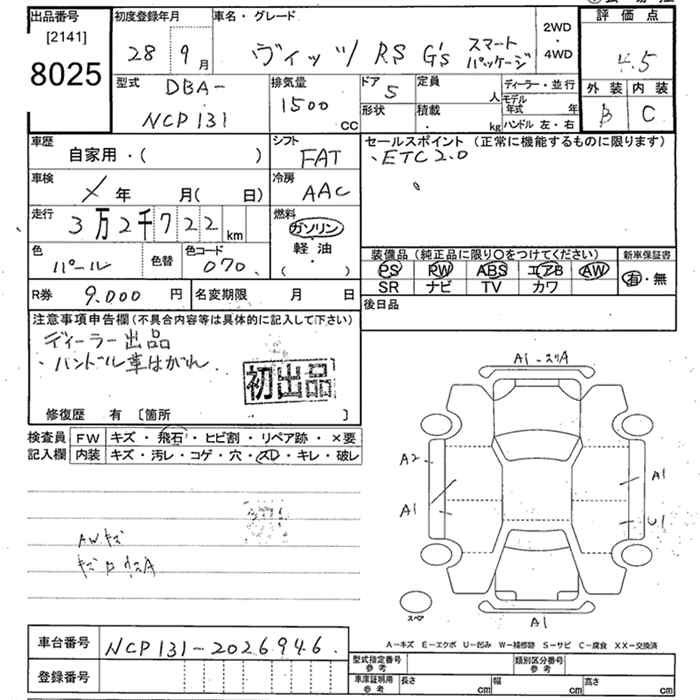 出品番号
[2141]
8025
初度登録年月
28年 9月
車名・グレード
ヴィッツ RS G's スマートパッケージ
2WD
・
4WD
評価点
4.5
外装 内装
B C
型式
DBA-
NCP131
排気量
1500 cc
ドア 5
形状
定員 人
積載 kg
ディーラー・並行
モデル年式 年
ハンドル 左・右
車歴
自家用・( )
シフト
FAT
セールスポイント (正常に機能するものに限ります)
、ETC2.0
車検
× 年 月( 日)
冷房
AAC
走行
3万2千722km
燃料
ガソリン
軽油
( ・ )
色
パール
色替
色コード
070
装備品(純正品に限り〇をつけてください)
PS PW ABS エアB AW
SR ナビ TV カワ
新車保証書
有・無
R券 9.000 円
名変期限 月 日
後日品
注意事項申告欄(不具合内容等は具体的に記入して下さい)
ディーラー出品
・ハンドル革はがれ
初出品
修復歴 有 〔箇所 〕
検査員記入欄
FW キズ・飛石・ヒビ割・リペア跡・×要
内装 キズ・汚レ・コゲ・穴・スレ・キレ・破レ
AWキズ
A1
A2
A1
A1
U1
A1
スペア
A-キズ E-エクボ U-凹み W-補修跡 S-サビ C-腐食 XX-交換済
車台番号 NCP131-2026946
登録番号
型式指定番号 参考
類別区分番号 参考
車庫証明用 参考
長さ cm 幅 cm 高さ cm